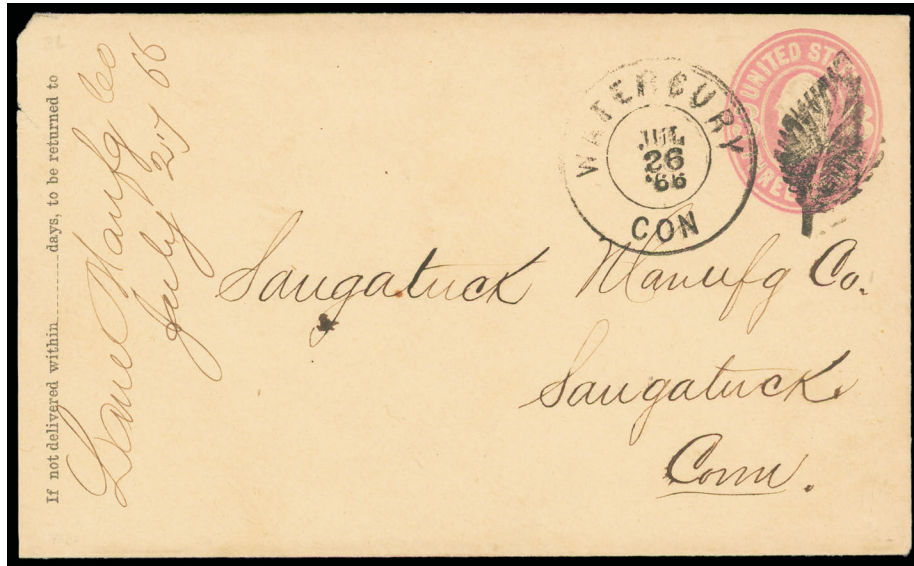 If not delivered within ........ days, to be returned to
Lane Manufg Co
July 27 66
WATERBURY
JUL
26
'66
CON
UNITED STA
THREE
Saugatuck Manufg Co.
Saugatuck
Conn.